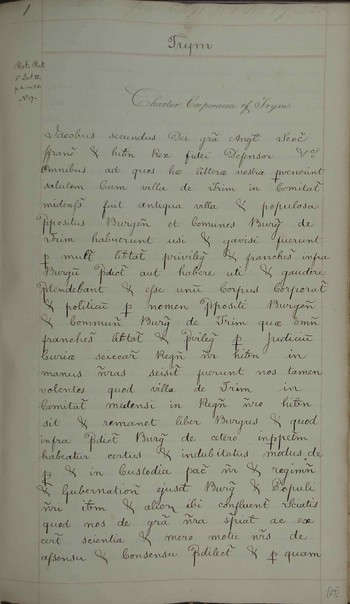 1
Trym
Rot. Pat.
5 Jac II
Charter Corporacon of Trym
Jacobus secundus Dei grã Angł Scoc̃
ffranc̃ & hibñ Rex fidei Defensor &c
Omnibus ad quos hæ littere nostra pvenerint
salutem Cum villa de Trim in Comitat̃
midenss̃ fuit antiqua villa & populosa
Ppositus Burgen̄ et Comunes Burg̃ de
Trim habuerunt usi & gavisi fuerunt
p mult̃ libtat̃ privileg̃ & franches̃ infra
Burgũ Pdict̃ aut habere uti & gaudire
Ptendebant & esse unũ Corpus Corporat̃
& politicũ p nomen Ppositi Burgen̄
& Commun̄ Burg̃ de Trim quæ omñ
franches̃ libtat̃ & Pivileg̃ p Judicuũ
Curiæ Scaccar̃ Regñ ñri hibñ in
manus ñras seisit̃ fuerunt nos tamen
volentes quod villa de Trim in
Comitat̃ midensi in Regñ ñro hibñ
sit & romanet liber Burgus & quod
infra Pdict̃ Burg̃ de cetero inppetm̃
habeatur certus & indubitatus modus de
p & in Custodia pac̃ ñr̃ & regimñ
& Gubernation̄ ejusd̃ Burg̃ & Populi
ñri ib̃m & alior̃ ibi confluent̃ Sciatis
quod nos de grã ñra sp̃iat̃ ac ex
cert̃ scientia & mero motu ñr̃s de
assensu & Consensu Pdilect̃ & p quam